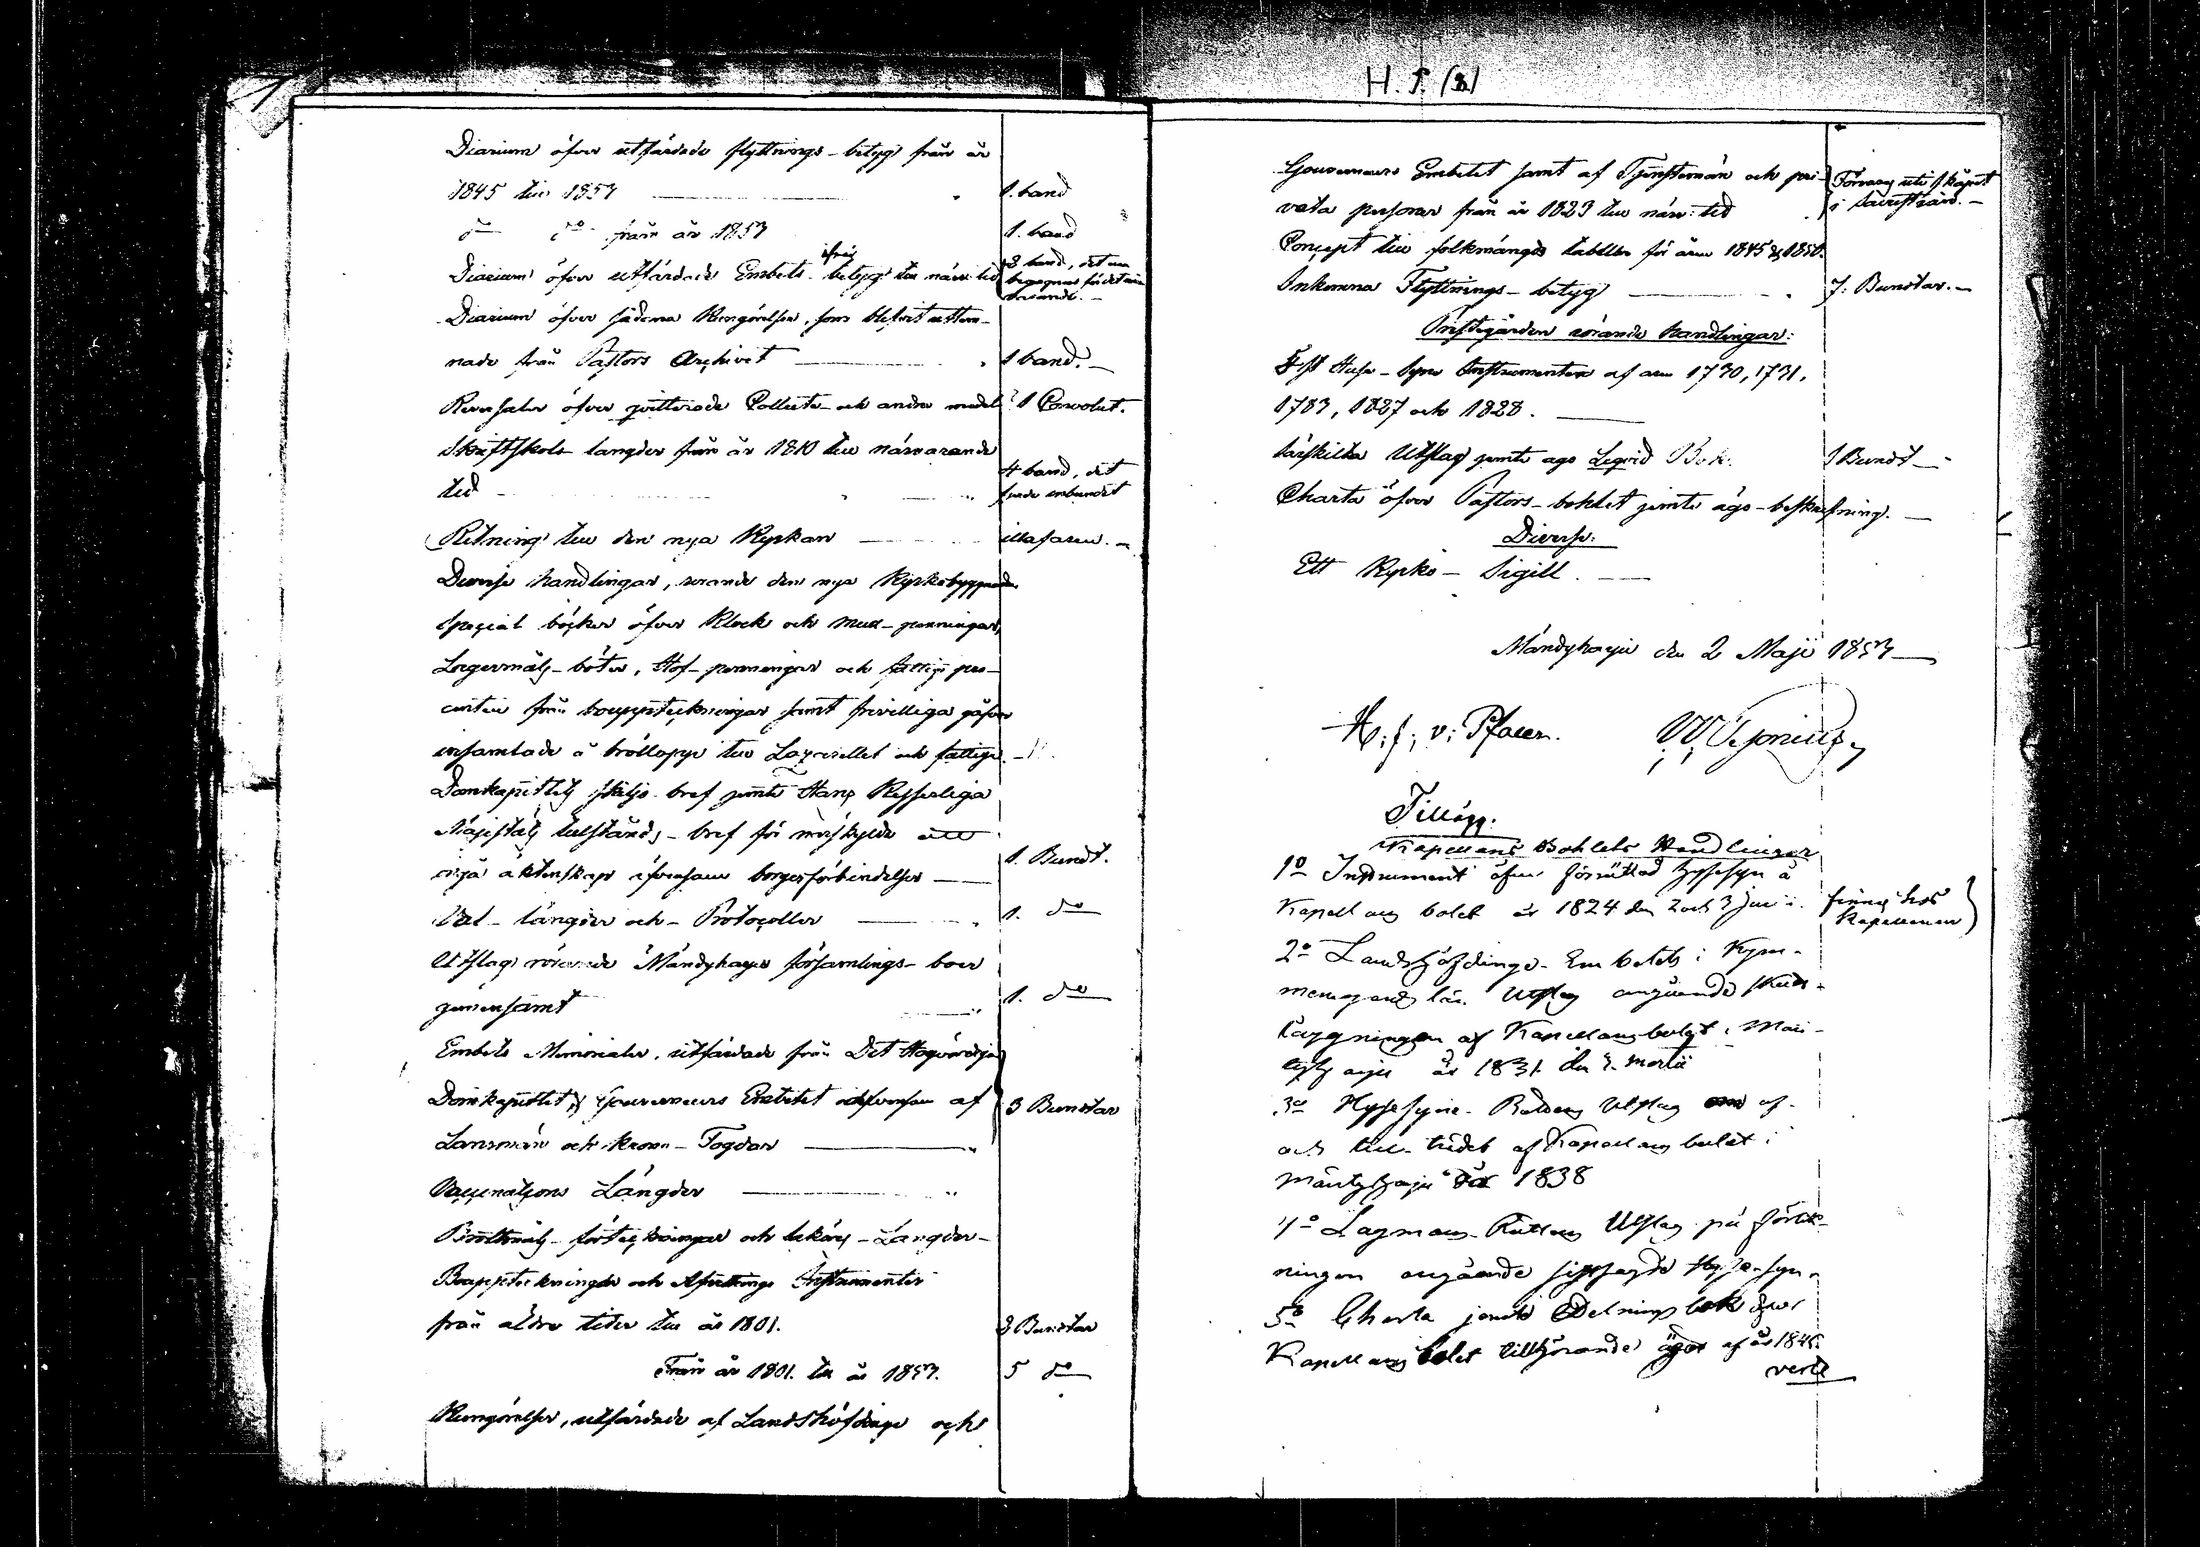 H. I. (3)
Diarium öfver utfärdade flyttnings-betyg från år
1845 till 1857 1. band
do do från år 1857 1. band
Diarium öfver utfärdade Embets-betyg till närv: tid 2 band, det ena
begagnas för det närvarande.
Diarium öfver sådana Kungörelser, som blifvit utläm-
nade från Pastors Archivet 1 band.
Reversaler öfver qvitterade Collecte- och andra medel 1 Convolut.
Skriftskols längder från år 1810 till närvarande
tid 4 band, det
sista inbundet
Ritning till den nya Kyrkan illa faren.
Diverse handlingar, rörande den nya Kyrkobyggnaden
Special böcker öfver Klock och mull-penningar,
Lägersmåls-böter, Håf-penningar och fattig pro-
center från bouppteckningar samt frivilliga gåfvor
insamlade å bröllopp till Lazarettet och fattige
Domkapitlets skiljo-bref jemte Hans Kejserliga
Majestäts tillstånds-bref för
ingå äktenskap äfvensom borgesförbindelser 1. Bundt.
Val-längder och Protocoller 1. do
Utslag rörande Mändyharju församlings-boer
gemensamt 1. do
Embets Memorialer, utfärdade från Det Högvördiga
Domkapitlet, Gouverneurs Embetet äfvensom af 3 Bundtar
Länsmän och krono-Fogdar
Vaccinations Längder
Brottmåls-förteckningar och Längder
Bouppteckningar och Afvittrings Instrumenter
från äldre tider till år 1801. 3 Bundtar
Från år 1801. till år 1857. 5 do
Kungörelser, utfärdade af Landshöfdinge och
Gouverneurs Embetet samt af Tjenstemän och pri- Förvaras uti skåpet
vata personer från år 1823 till närv: tid i Sacristian.
Concept till folkmängds tabeller för åren 1845 & 1850.
Inkomna Flyttnings-betyg 7. Bundtar.
Prestgården rörande handlingar:
Husesyns Instrumenter af åren 1730, 1731,
1783, 1827 och 1828.
Särskilta Utslag jemte ägo Legvid Bok. 1 Bundt
Charta öfver Pastors-bohlet jemte ägo-beskrifning.
Diverse:
Ett Kyrko-Sigill.
Mändyharju den 2 Maji 1857
H. f; v; Pfaler.
Tillägg.
Kapellans Bohlets Handlingar
1o Instrument öfver förrättad husesyn å
Kapellans bolet år 1824 den 2 och 3 Juni. finnes hos
Kapellanen
2o Landshöfdinge-Embetets i Kym-
menegårds län. Utslag angående skatt-
läggningen af Kapellansbolet i Män-
tyharju år 1831 den 3. Martii
3o Husesyne-Rättens Utslag om af-
och till-trädet af Kapellans bolet i
Mäntyharju år 1838
4o Lagmans-Rättens Utslag på förlik-
ningen angående sistsagde Husesyn.
5o Charta jemte Delnings bok öfver
Kapellans bolet tillhörande ägor af år 1845.
verte